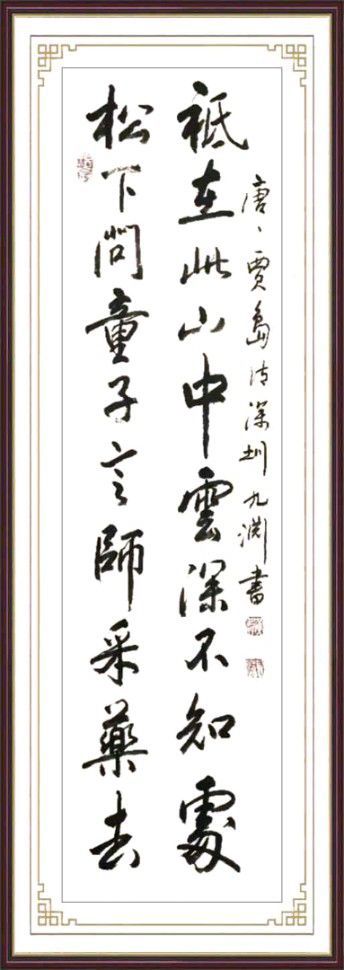 松下問童子言師采藥去
祗在此山中雲深不知處
唐、賈島詩深圳九淵書